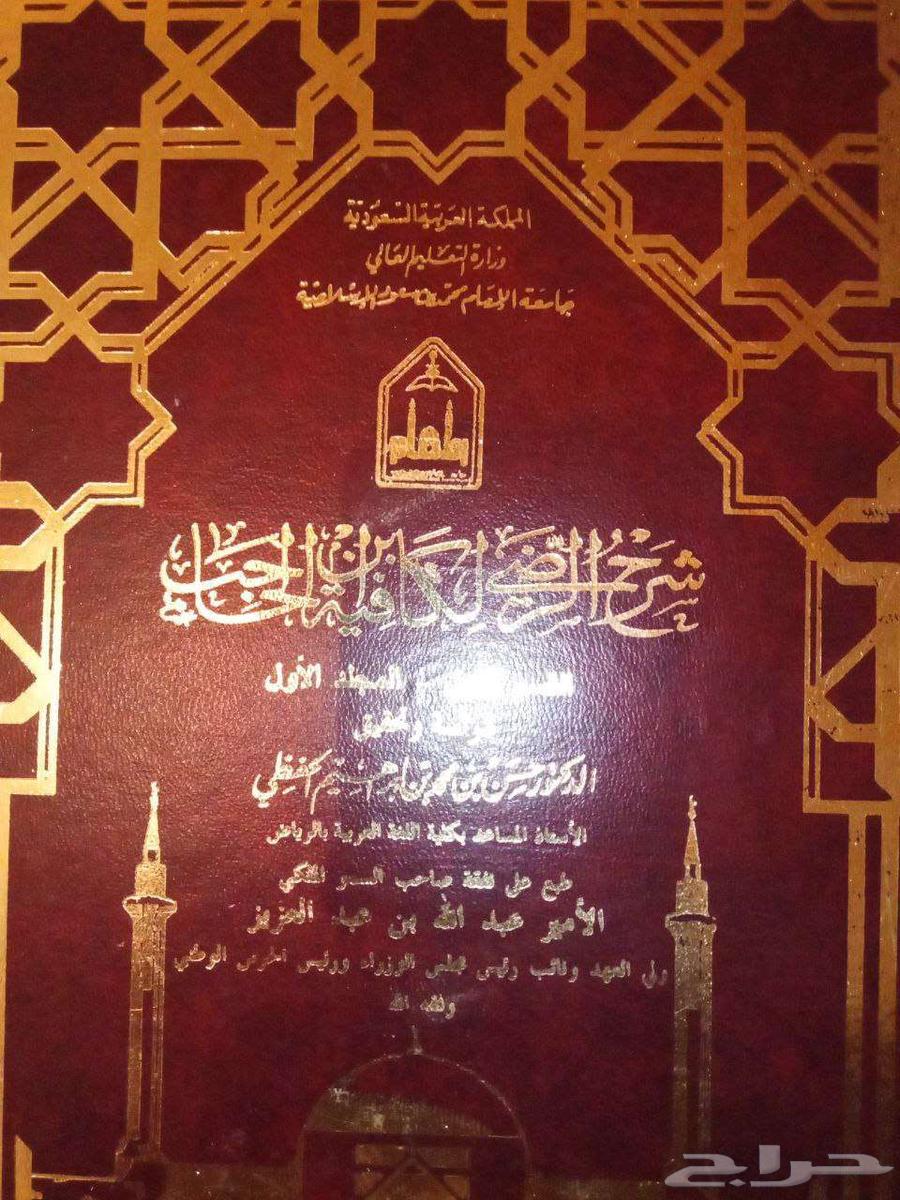 المملكة العربية السعودية
وزارة التعليم العالي
جامعة الإمام محمد بن سعود الإسلامية
شرح الرضي لكافية ابن الحاجب
القسم الأول المجلد الأول
دراسة وتحقيق
الدكتور حسن بن محمد بن إبراهيم الحفظي
الأستاذ المساعد بكلية اللغة العربية بالرياض
طبع على نفقة صاحب السمو الملكي
الأمير عبد الله بن عبد العزيز
ولي العهد ونائب رئيس مجلس الوزراء ورئيس الحرس الوطني
وفقه الله
حراج